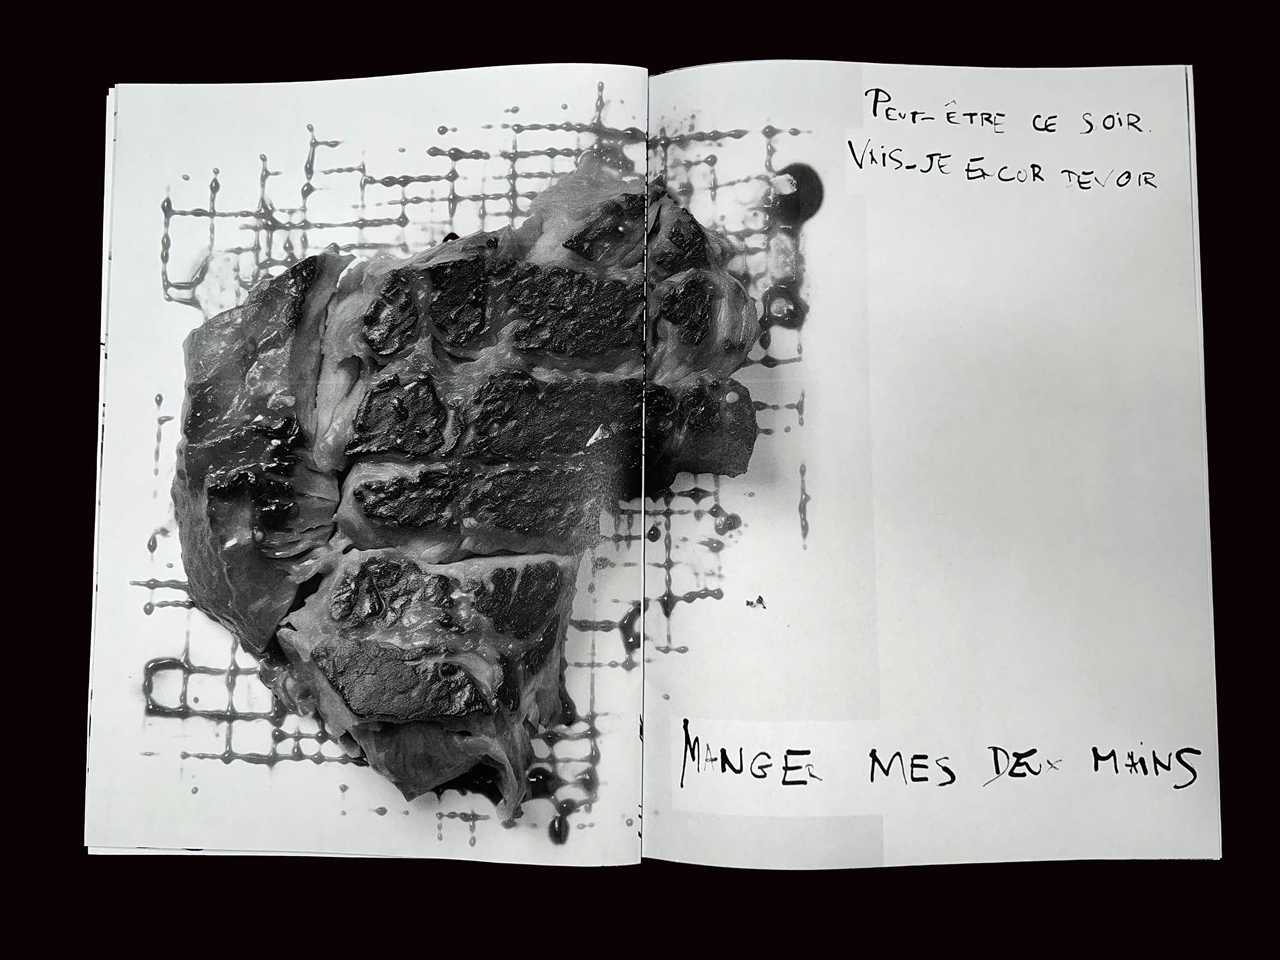 PEUT-ÊTRE CE SOIR.
VAIS-JE ENCOR DEVOIR
MANGER MES DEUX MAINS